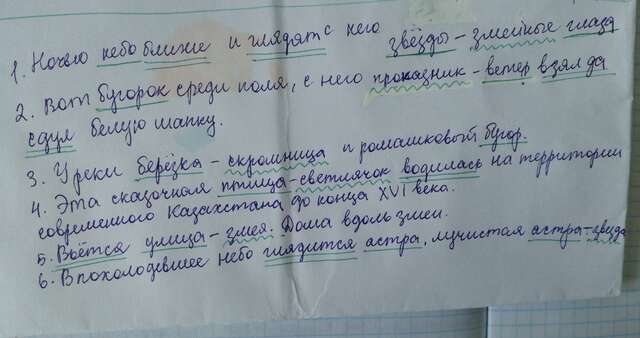 1. Ночью небо ближе и глядят с него звёзды - змеиные глаза
2. Вот бугорок среди поля, с него проказник - ветер взял да
сдул белую шапку.
3. У реки берёзка - скромница и ромашковый бугор.
4. Эта сказочная птица - светлячок водилась на территории
современного Казахстана до конца XVI века.
5. Вьётся улица - змея. Дома вдоль змеи.
6. В похолодевшее небо глядится астра, лучистая астра - звезда